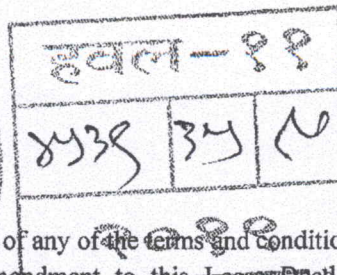 हवल-११
४५३९ ३५
२०११
of any of the terms and conditio
to this